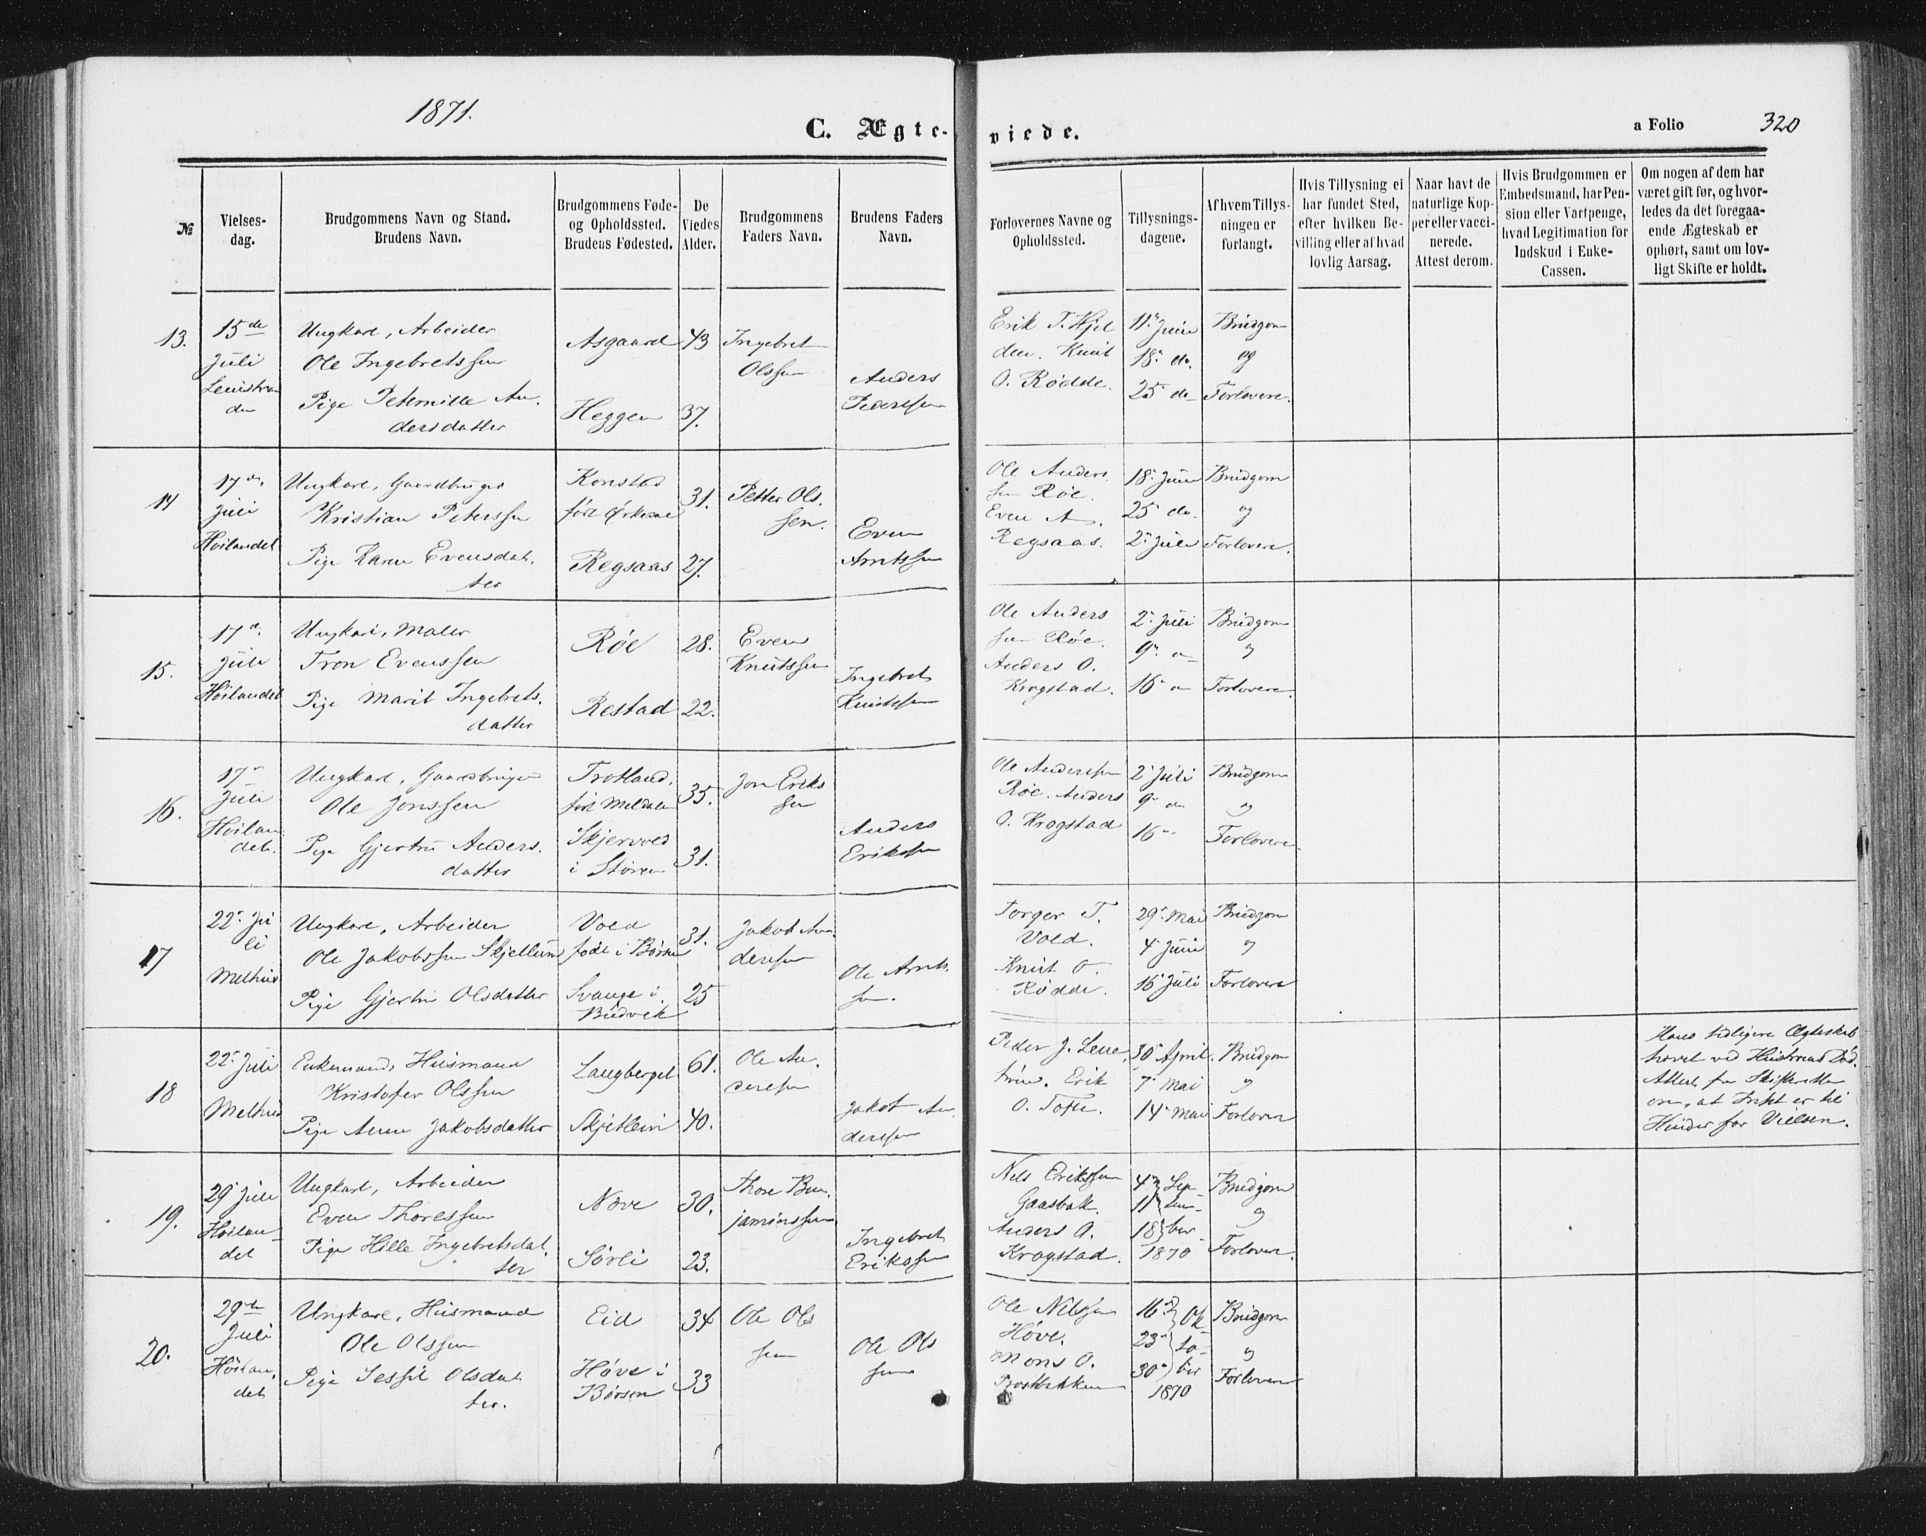 1871.
C. Ægteviede.
a Folio 320
№
Vielsesdag.
Brudgommens Navn og Stand.
Brudens Navn.
Brudgommens Føde-
og Opholdssted.
Brudens Fødested.
De
Viedes
Alder.
Brudgommens
Faders Navn.
Brudens Faders
Navn.
Forlovernes Navne og
Opholdssted.
Tillysnings-
dagene.
Af hvem Tillys-
ningen er
forlangt.
Hvis Tillysning ei
har fundet Sted,
efter hvilken Be-
villing eller af hvad
lovlig Aarsag.
Naar havt de
naturlige Kop-
per eller vacci-
nerede.
Attest derom.
Hvis Brudgommen er
Embedsmand, har Pen-
sion eller Vartpenge,
hvad Legitimation for
Indskud i Enke-
Cassen.
Om nogen af dem har
været gift før, og hvor-
ledes da det foregaa-
ende Ægteskab er
ophørt, samt om lov-
ligt Skifte er holdt.
13.
15de
Juli
Leinstran
den
Ungkarl, Arbeider
Ole Ingebretssen
Pige Peternille An.
dersdatter
Asgaard
Heggen
43
37.
Ingebret
Olssen
Anders
Pederssen
Erik T. Kjel
den. Knut
O. Rødde.
11. Juni
18. do.
25 do
Brudgom
og
Forlovere.
14
17de
Juli
Høilandet
Ungkarl, Gaardbruger
Kristian Peterssen
Pige Karen Evensdat.
ter
Konstad
født Ørkedal
Regsaas
31.
27.
Petter Ols
sen.
Even
Arntssen
Ole Anders
sen Røe.
Even A.
Regsaas.
18. Juni
25 do.
2. Juli
Brudgom
og
Forlovere.
15.
17de
Juli
Høilandet
Ungkarl, Maler
Tron Evenssen
Pige Marit Ingebrets.
datter
Røe
Restad
28.
22.
Even
Knutssen
Ingebret
Knutssen
Ole Anders
sen Røe.
Anders O.
Krogstad.
2. Juli
9.
16
Brudgom
og
Forlovere.
16.
17
Juli
Høilan
det.
Ungkarl, Gaardbruger
Ole Jonssen
Pige Gjertru Anders.
datter
Trotland,
født Meldalen
Skjervold
i Støren
35.
31.
Jon Eriks
sen
Anders
Erikssen
Ole Anderssen
Røe. Anders
O. Krogstad
2. Juli
9.
16
Brudgom
og
Forlovere
17
22. Ju
li
Melhus
Ungkarl, Arbeider
Ole Jakobssen Skjellum
Pige Gjertru Olsdatter
Vold
født i Børsen
Svange i
Budvik
31.
25
Jakob An
derssen
Ole Arnts.
sen.
Torger T.
Vold.
Knut O.
Rødde.
29. Mai
4. Juni
16. Juli
Brudgom
og
Forlovere
18
22. Juli
Melhus
Enkemand, Husmand
Kristofer Olssen
Pige Anne Jakobsdatter
Langberget
Skjetlein
61.
40.
Ole An.
derssen
Jakob An
derssen
Peder J. Lene,
Erik
O. Tofte.
30. April.
7. Mai
14. Mai
Brudgom
og
Forlovere
Hans tidligere Ægteskab
hævet ved Hustruens Død.
Attest fra Skifteretten
om, at Intet er til
Hinder for Vielsen.
19.
29. Juli
Høilan
det
Ungkarl, Arbeider
Even Thoressen
Pige Hille Ingebretsdat.
ter
Nøve
Sørli
30.
23.
Thore Ben.
jaminssen
Ingebret
Erikssen
Nils Erikssen
Gaasbak.
Anders O.
Krogstad.
4 Sep
11 tem
18 ber
1870
Brudgom
og
Forlovere.
20.
29de
Juli
Høilan.
det
Ungkarl, Husmand
Ole Olssen
Pige Sessil Olsdat
ter.
Eid
Høve i
Børsen
34
33
Ole Ols
sen
Ole Ols
sen
Ole Nilssen
Høve.
Mons O.
Prostbakken
16 Ok
23 to
30 ber
1870
Brudgom
og
Forlovere